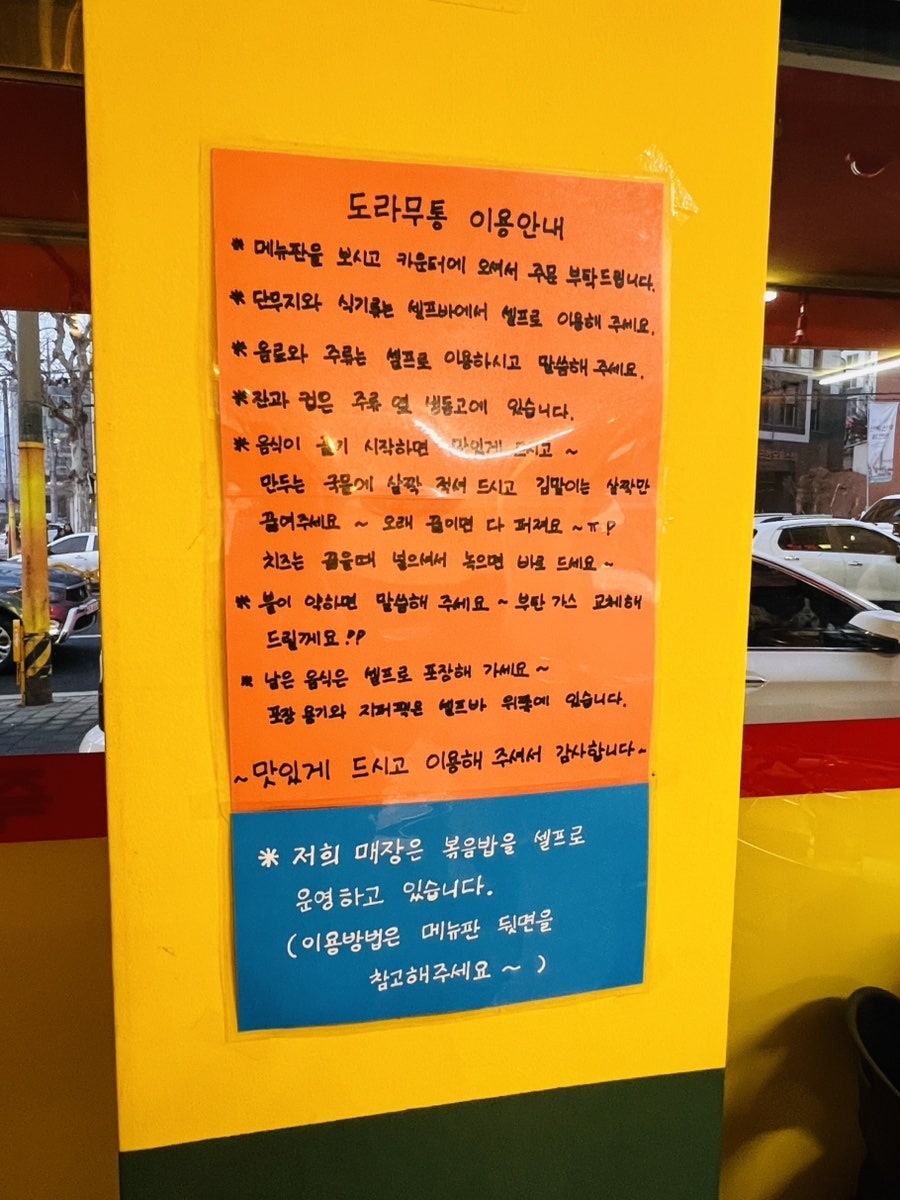 도라무통 이용안내
* 메뉴판을 보시고 카운터에 오셔서 주문 부탁드립니다.
* 단무지와 식기류는 셀프바에서 셀프로 이용해 주세요.
* 음료와 주류는 셀프로 이용하시고 말씀해 주세요.
* 잔과 컵은 주류 옆 냉동고에 있습니다.
* 음식이 끓기 시작하면 맛있게 드시고 ~
만두는 국물에 살짝 적셔 드시고 김말이는 살짝만
끓여주세요 ~ 오래 끓이면 다 퍼져요 ~ㅠㅠ
치즈는 끓을때 넣으셔서 녹으면 바로 드세요~
* 불이 약하면 말씀해 주세요 ~ 부탄가스 교체해
드릴께요!!
* 남은 음식은 셀프로 포장해 가세요~
포장 용기와 지퍼팩은 셀프바 위쪽에 있습니다.
~맛있게 드시고 이용해 주셔서 감사합니다~
* 저희 매장은 볶음밥을 셀프로
운영하고 있습니다.
(이용방법은 메뉴판 뒷면을
참고해주세요 ~ )